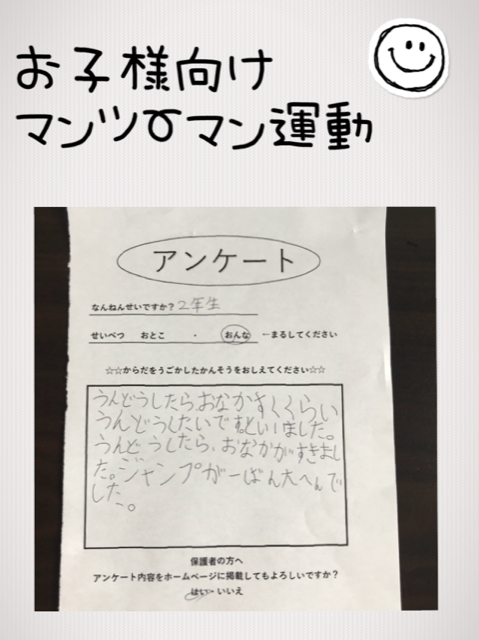 お子様向け
マンツーマン運動
アンケート
なんねんせいですか？2年生
せいべつ おとこ ・ おんな ←まるしてください
☆☆からだをうごかしたかんそうをおしえてください☆☆
うんどうしたらおなかすくくらい
うんどうしたいですといいました。
うんどうしたら、おなかがすきまし
た。ジャンプが一ばん大へんで
した。
保護者の方へ
アンケート内容をホームページに掲載してもよろしいですか？
はい・いいえ